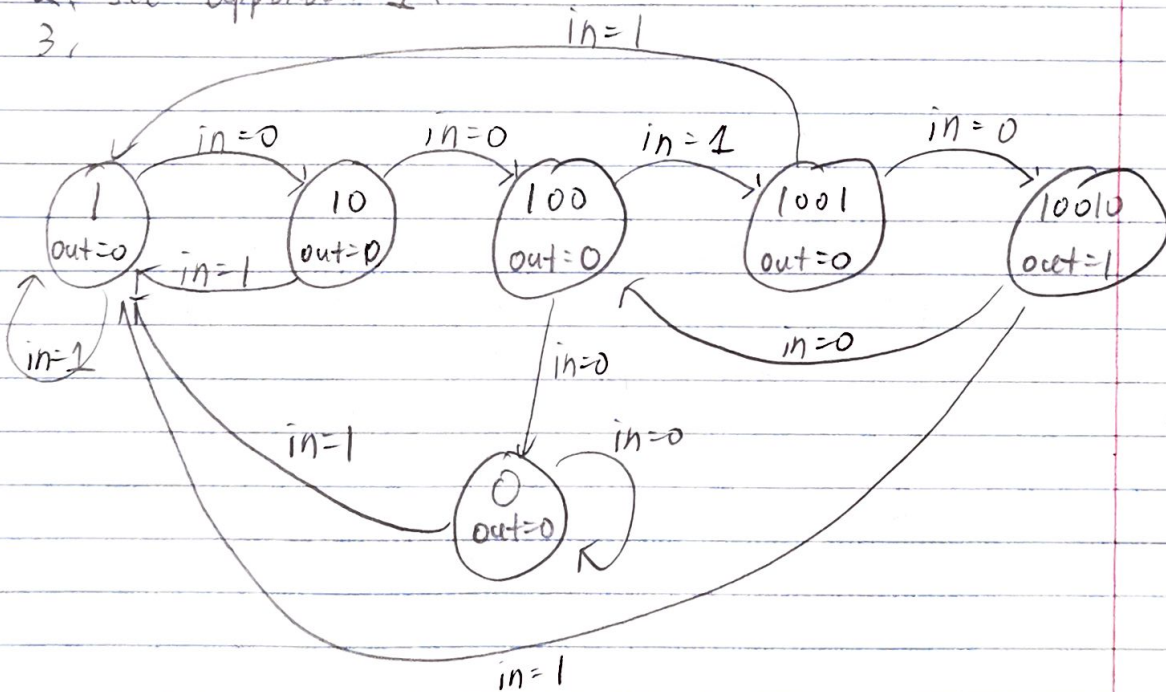 3,
in=1
in=0
in=0
in=1
in=0
1
out=0
10
out=0
100
out=0
1001
out=0
10010
out=1
in=1
in=1
in=0
in=0
in=1
in=0
0
out=0
in=1